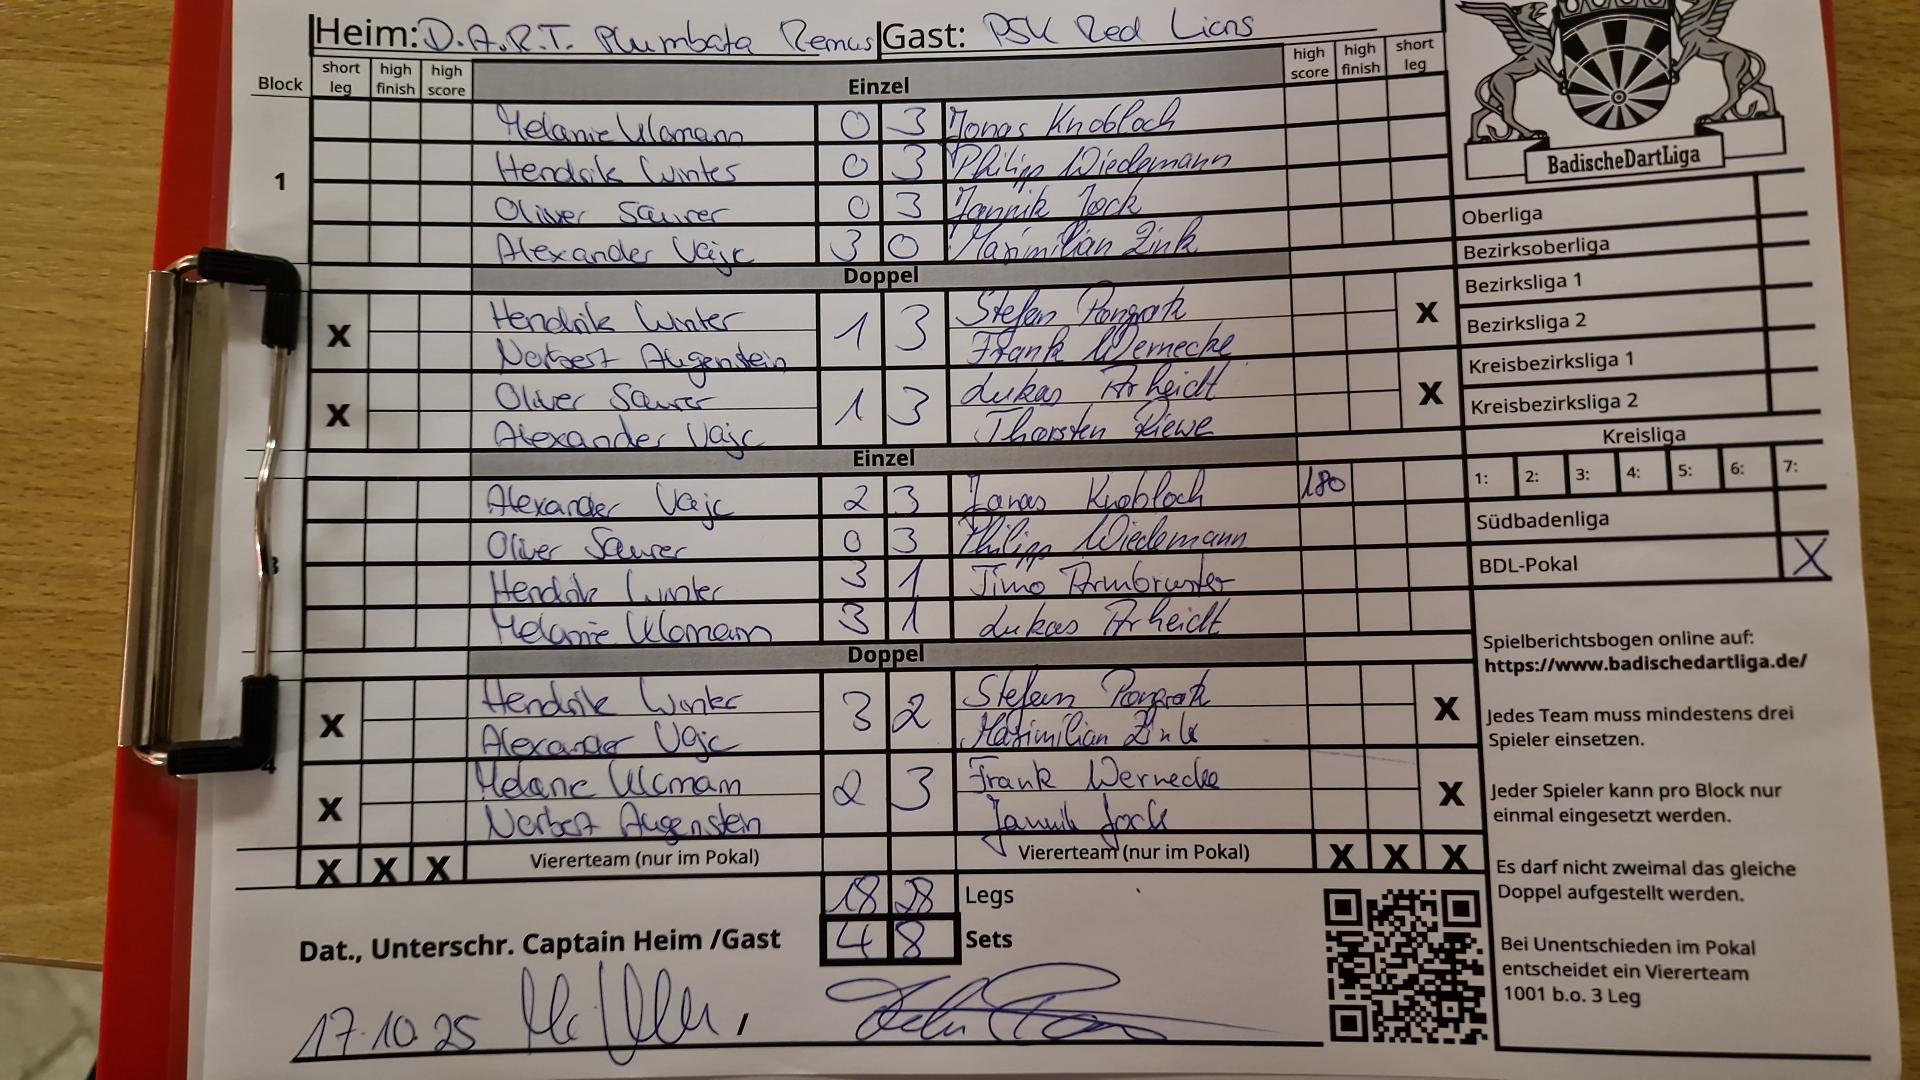 Heim: D.A.R.T. Plumbata Remus Gast: PSK Red Lions
Block short leg high finish high score Einzel high score high finish short leg
1
Melanie Ulamann 0 3 Jonas Knobloch
Hendrik Winter 0 3 Philipp Wiedemann
Oliver Saurer 0 3 Jannik Jock
Alexander Vajc 3 0 Maximilian Zink
Doppel
X Hendrik Winter 1 3 Stefan Pongratz X
Norbert Augenstein Frank Wernecke
X Oliver Saurer 1 3 Lukas Arheidt X
Alexander Vajc Thorsten Kiewe
Einzel
3
Alexander Vajc 2 3 Jonas Knobloch 180
Oliver Saurer 0 3 Philipp Wiedemann
Hendrik Winter 3 1 Timo Armbruster
Melanie Ulamann 3 1 Lukas Arheidt
Doppel
4
X Hendrik Winter 3 2 Stefan Pongratz X
Alexander Vajc Maximilian Zink
X Melanie Ulamann 2 3 Frank Wernecke X
Norbert Augenstein Jannik Jock
X X X Viererteam (nur im Pokal) Viererteam (nur im Pokal) X X X
18 28 Legs
Dat., Unterschr. Captain Heim /Gast 4 8 Sets
17.10.25
BadischeDartLiga
Oberliga
Bezirksoberliga
Bezirksliga 1
Bezirksliga 2
Kreisbezirksliga 1
Kreisbezirksliga 2
Kreisliga
1: 2: 3: 4: 5: 6: 7:
Südbadenliga
BDL-Pokal X
Spielberichtsbogen online auf:
https://www.badischedartliga.de/
Jedes Team muss mindestens drei
Spieler einsetzen.
Jeder Spieler kann pro Block nur
einmal eingesetzt werden.
Es darf nicht zweimal das gleiche
Doppel aufgestellt werden.
Bei Unentschieden im Pokal
entscheidet ein Viererteam
1001 b.o. 3 Leg